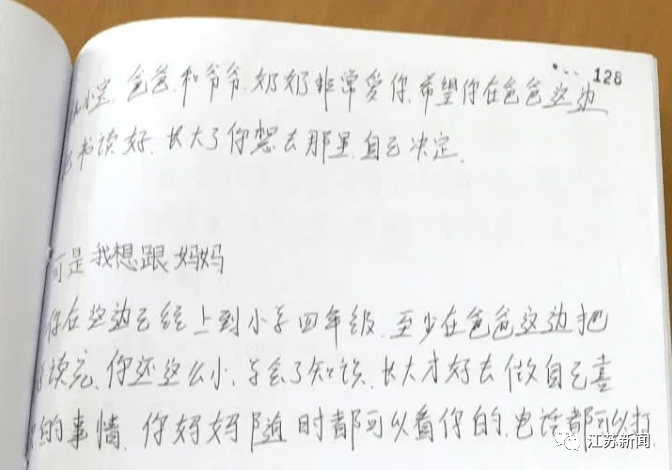 128
小宝，爸爸和爷爷奶奶非常爱你，希望你在爸爸这边
书读好，长大了你想去那里自己决定。
可是我想跟妈妈
你在这边已经上到小学四年级，至少在爸爸这边把
读完，你还这么小，学会了知识，长大才好去做自己喜
的事情，你妈妈随时都可以看你的，电话都可以打
江苏新闻